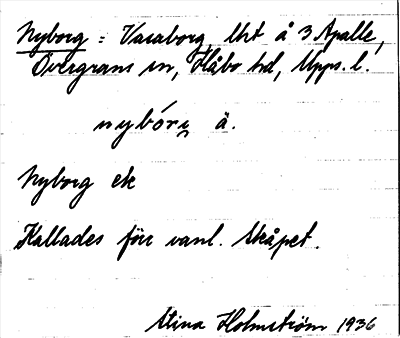 Nyborg = Vasaborg, lht å 3 Apalle,
Övergrans sn, Håbo hd, Upps. l.
nybórj ä.
Nyborg ek
Kallades förr vanl. Skåpet.
Stina Holmström 1936